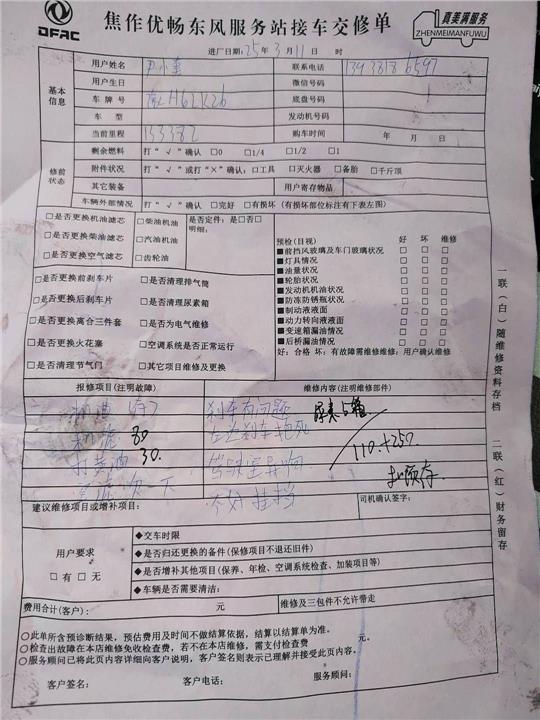 DFAC
焦作优畅东风服务站接车交修单
真美满服务
ZHENMEIMANFUWU
进厂日期:25年3月11日 时
基本信息
用户姓名 尹小奎 联系电话
用户生日 微信号码
车牌号 底盘号码
车型 发动机号码
当前里程 购车时间 年 月 日
修前状态
剩余燃料 打“√”确认 □0 □1/4 □1/2 □1
附件状况 打“√”或打“×”确认:□工具 □灭火器 □备胎 □千斤顶
其它装备 用户寄存物品
车辆外部情况 打“√”确认 □完好 □有损坏(有损坏部位标注有下表左图)
□是否更换机油滤芯 □柴油机油 是否定件:是□否□
□是否更换柴油滤芯 □汽油机油 明细:
□是否更换空气滤芯 □齿轮油
□是否更换前刹车片 □是否清理排气筒
□是否更换后刹车片 □是否清理尿素箱
□是否更换离合三件套 □是否为电气维修
□是否更换火花塞 □空调系统是否正常运行
□是否清理节气门 □其它项目维修及更换
预检(目视) 好 坏 维修
■前挡风玻璃及车门玻璃状况 □ □ □
■灯具情况 □ □ □
■油量状况 □ □ □
■轮胎状况 □ □ □
■发动机机油状况 □ □ □
■防冻防锈瓶状况 □ □ □
■制动液液面 □ □ □
■动力转向液液面 □ □ □
■变速箱漏油情况 □ □ □
■后桥漏油情况 □ □ □
好:合格 坏:有故障需维修维修:用户确认维修
一联(白)随维修资料存档
二联(红)财务留存
报修项目(注明故障) 维修内容(注明维修部件)
刹车有问题
机滤 80 左边刹车抱死
打黄油 30. 驾驶室异响
不好挂挡
110.+250
建议维修项目或增补项目: 司机确认签字:
用户要求
□有 □无
◆交车时限
◆是否归还更换的备件(保修项目不退还旧件)
◆是否增补其他项目(保养、年检、空调系统检查、加装项目等)
◆车辆是否需要清洁:
费用合计(客户): 元 维修及三包件不允许带走
○此单所含预诊断结果,预估费用及时间不做结算依据,结算以结算单为准。
○检查出故障在本店维修免收检查费,若不在本店维修,需支付检查费 元。
○服务顾问已将此页内容详细向客户说明,客户签名则表示已理解并接受此页内容。
客户签名: 客户电话: 服务顾问: